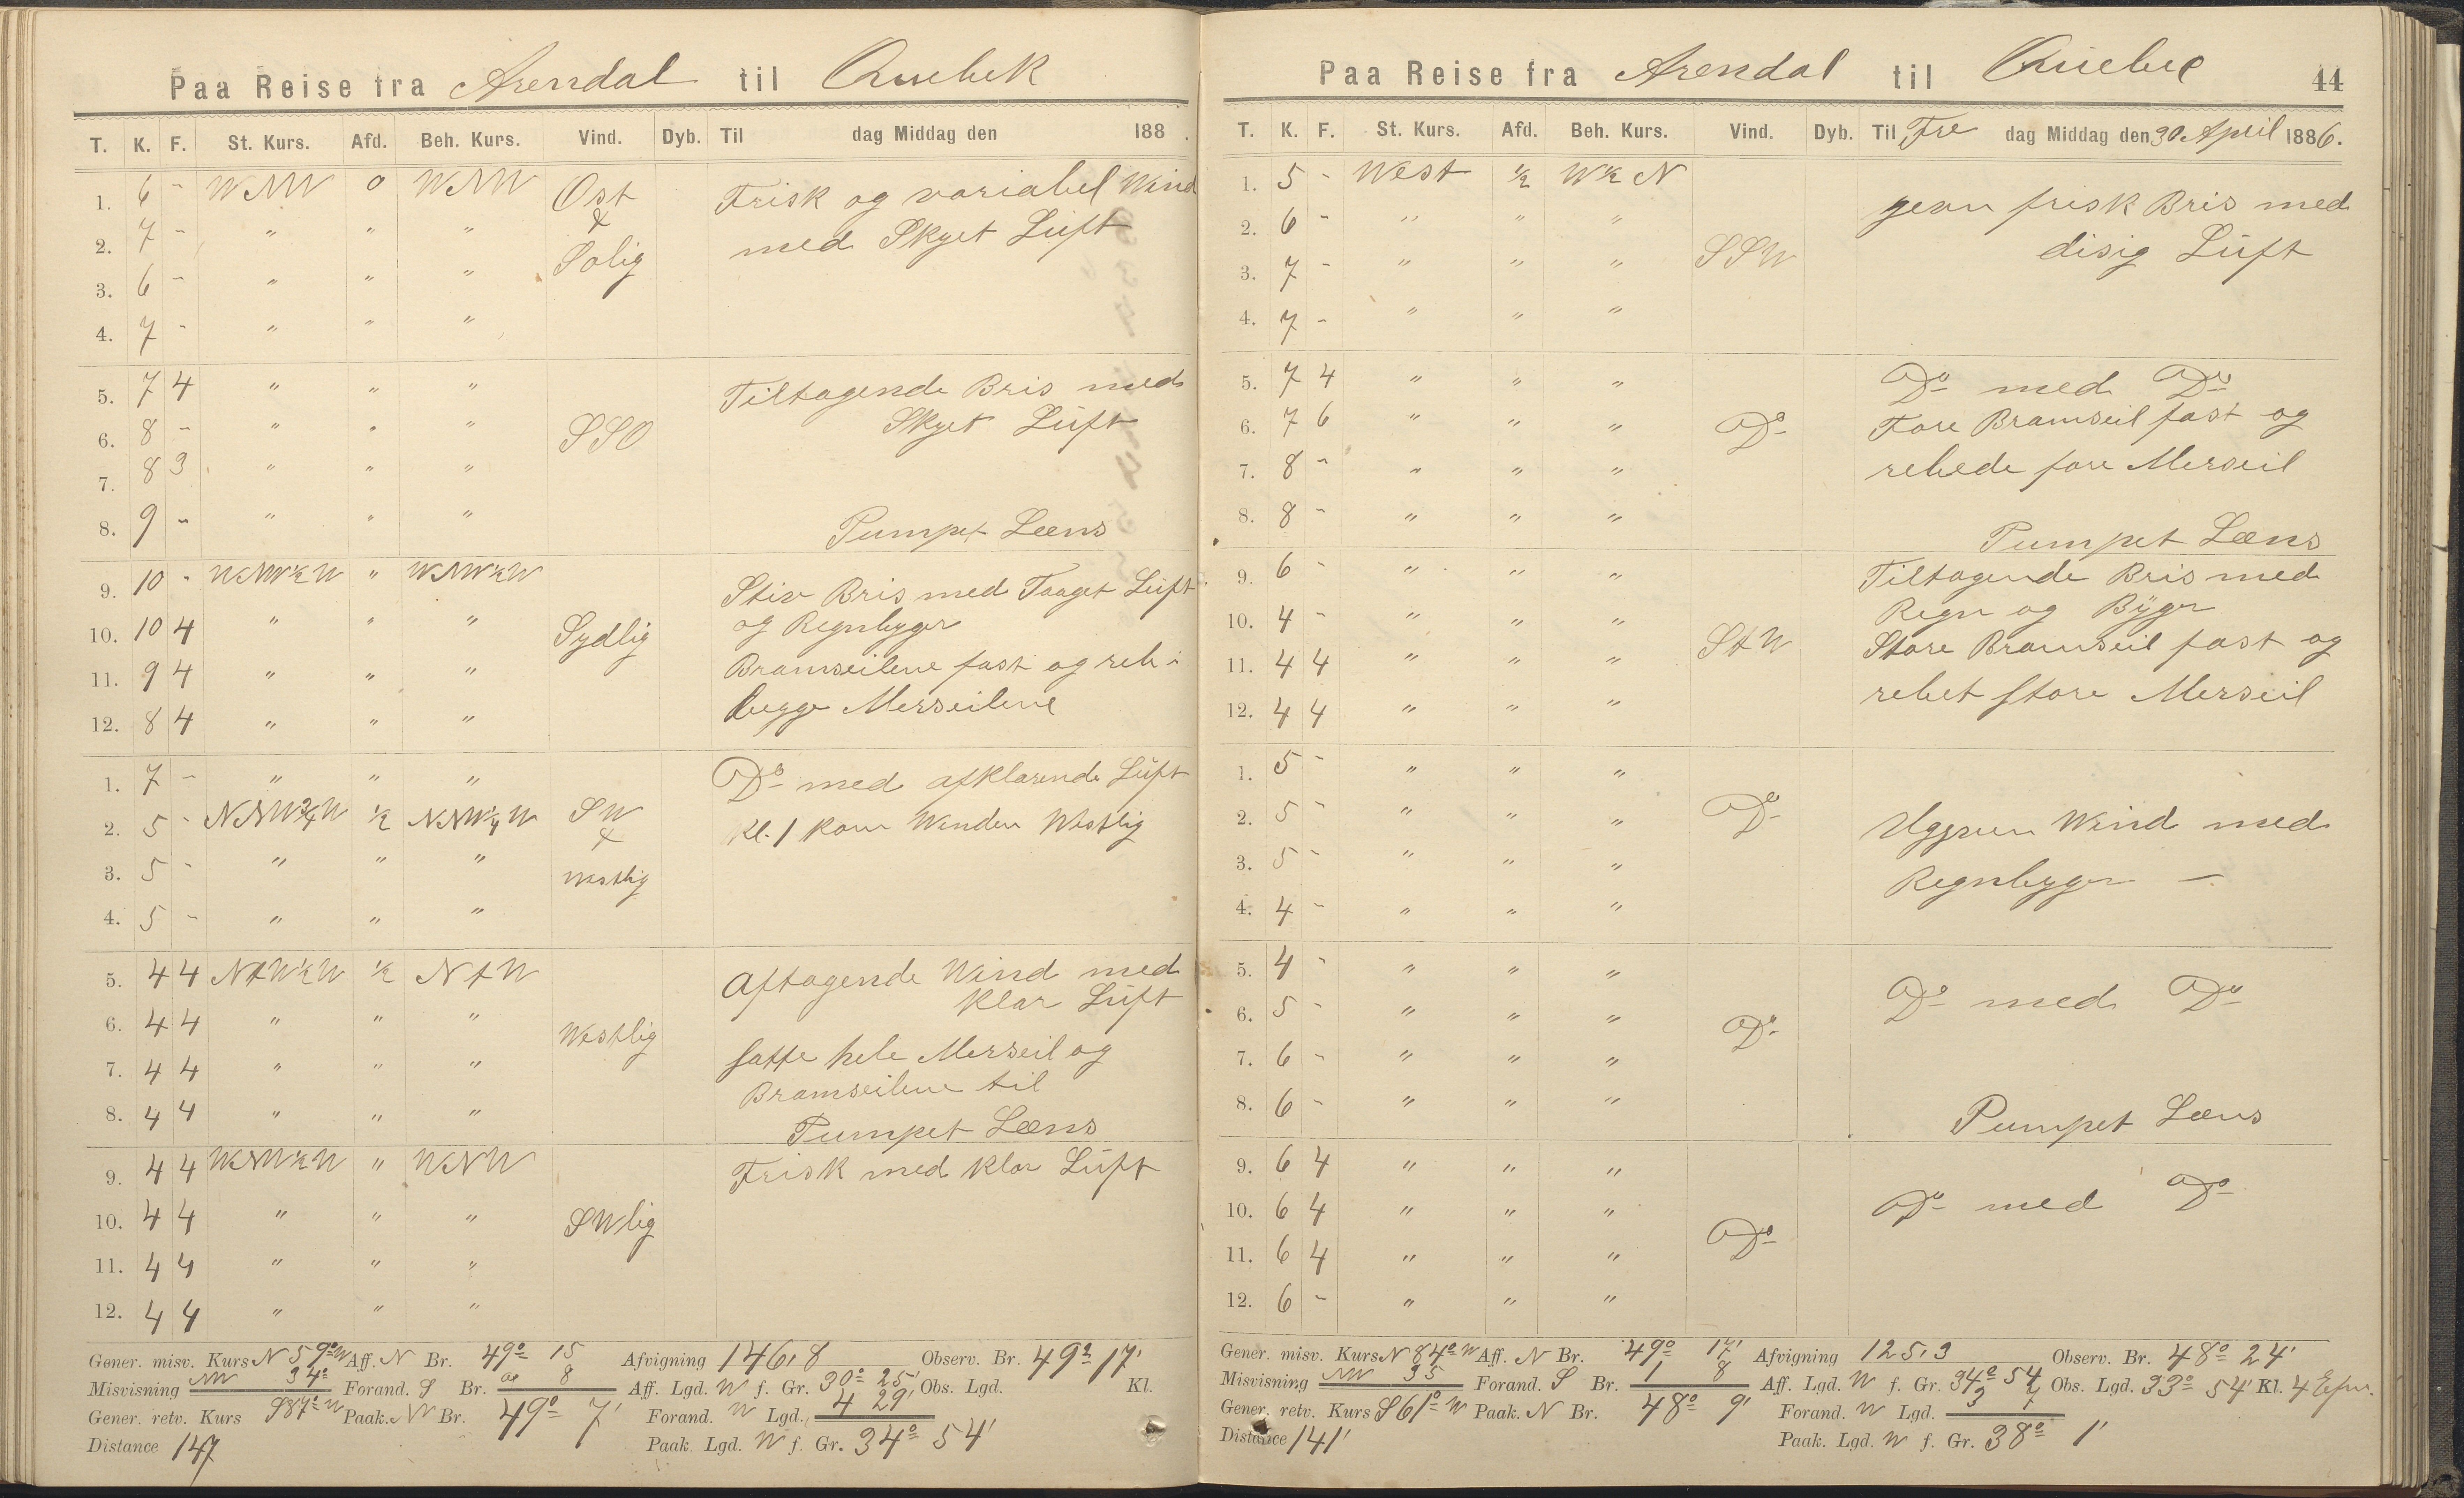 Paa Reise fra Arendal til Quebek
T. K. F. St. Kurs. Afd. Beh. Kurs. Vind. Dyb. Til dag Middag den 188 .
1. 6 - WNW 0 WNW Ost Frisk og variabel Wind
2. 7 - " " " & med Skyet Luft
3. 6 - " " " Solig
4. 7 - " " "
5. 7 4 " " " Tiltagende Bris med
6. 8 - " " " SSO Skyet Luft
7. 8 3 " " "
8. 9 - " " " Pumpet Læns
9. 10 - WNW½W " WNW½W Stiv Bris med Taaget Luft
10. 10 4 " " " Sydlig og Regnbyger
11. 9 4 " " " Bramseilene fast og reb i
12. 8 4 " " " begge Merseilene
1. 7 - " " " Do med afklarende Luft
2. 5 - NNW¾W ½ NNW¼W SW & Kl. 1 kom Winden Westlig
3. 5 - " " " westlig
4. 5 - " " "
5. 4 4 NtW½W ½ NtW Aftagende Wind med
klar Luft
6. 4 4 " " " Westlig
7. 4 4 " " " satte hele Merseil og
8. 4 4 " " " Bramseilene til
Pumpet Læns
9. 4 4 WNW½W " WNW Frisk med klar Luft
10. 4 4 " " " SWlig
11. 4 4 " " "
12. 4 4 " " "
Gener. misv. Kurs N 59° W Aff. N Br. 49° 15 Afvigning 146,8 Observ. Br. 49° 17'
Misvisning NW 34° Forand. S Br. 8 Aff. Lgd. W f. Gr. 30° 25' Obs. Lgd. Kl.
Gener. retv. Kurs S87° W Paak. N Br. 49° 7' Forand. W Lgd. 4 29'
Distance 147 Paak. Lgd. W f. Gr. 34° 54'
Paa Reise fra Arendal til Quebec 44
T. K. F. St. Kurs. Afd. Beh. Kurs. Vind. Dyb. Til Fre dag Middag den 30 April 1886.
1. 5 - West ½ W½N jevn frisk Bris med
2. 6 - " " " disig Luft
3. 7 - " " " SSW
4. 7 - " " "
5. 7 4 " " " Do med Do
6. 7 6 " " " Do Fore Bramseil fast og
7. 8 - " " " rebede fore Merseil
8. 8 - " " " Pumpet Læns
9. 6 - " " " Tiltagende Bris med
10. 4 - " " " Regn og Byger
11. 4 4 " " " StW Store Bramseil fast og
12. 4 4 " " " rebet store Merseil
1. 5 - " " "
2. 5 - " " " Do Ugjevn Wind med
3. 5 - " " " Regnbyger -
4. 4 - " " "
5. 4 - " " " Do med Do
6. 5 - " " " Do
7. 6 - " " "
8. 6 - " " " Pumpet Læns
9. 6 4 " " "
10. 6 4 " " " Do med Do
11. 6 4 " " " Do
12. 6 - " " "
Gener. misv. Kurs N 84° W Aff. N Br. 49° 17' Afvigning 125,3 Observ. Br. 48° 24'
Misvisning NW 35 Forand. S Br. 1 8 Aff. Lgd. W f. Gr. 34° 54 Obs. Lgd. 33° 54' Kl. 4 Efm.
Gener. retv. Kurs S61° W Paak. N Br. 48° 9' Forand. W Lgd. 3 7
Distance 141' Paak. Lgd. W f. Gr. 38° 1'